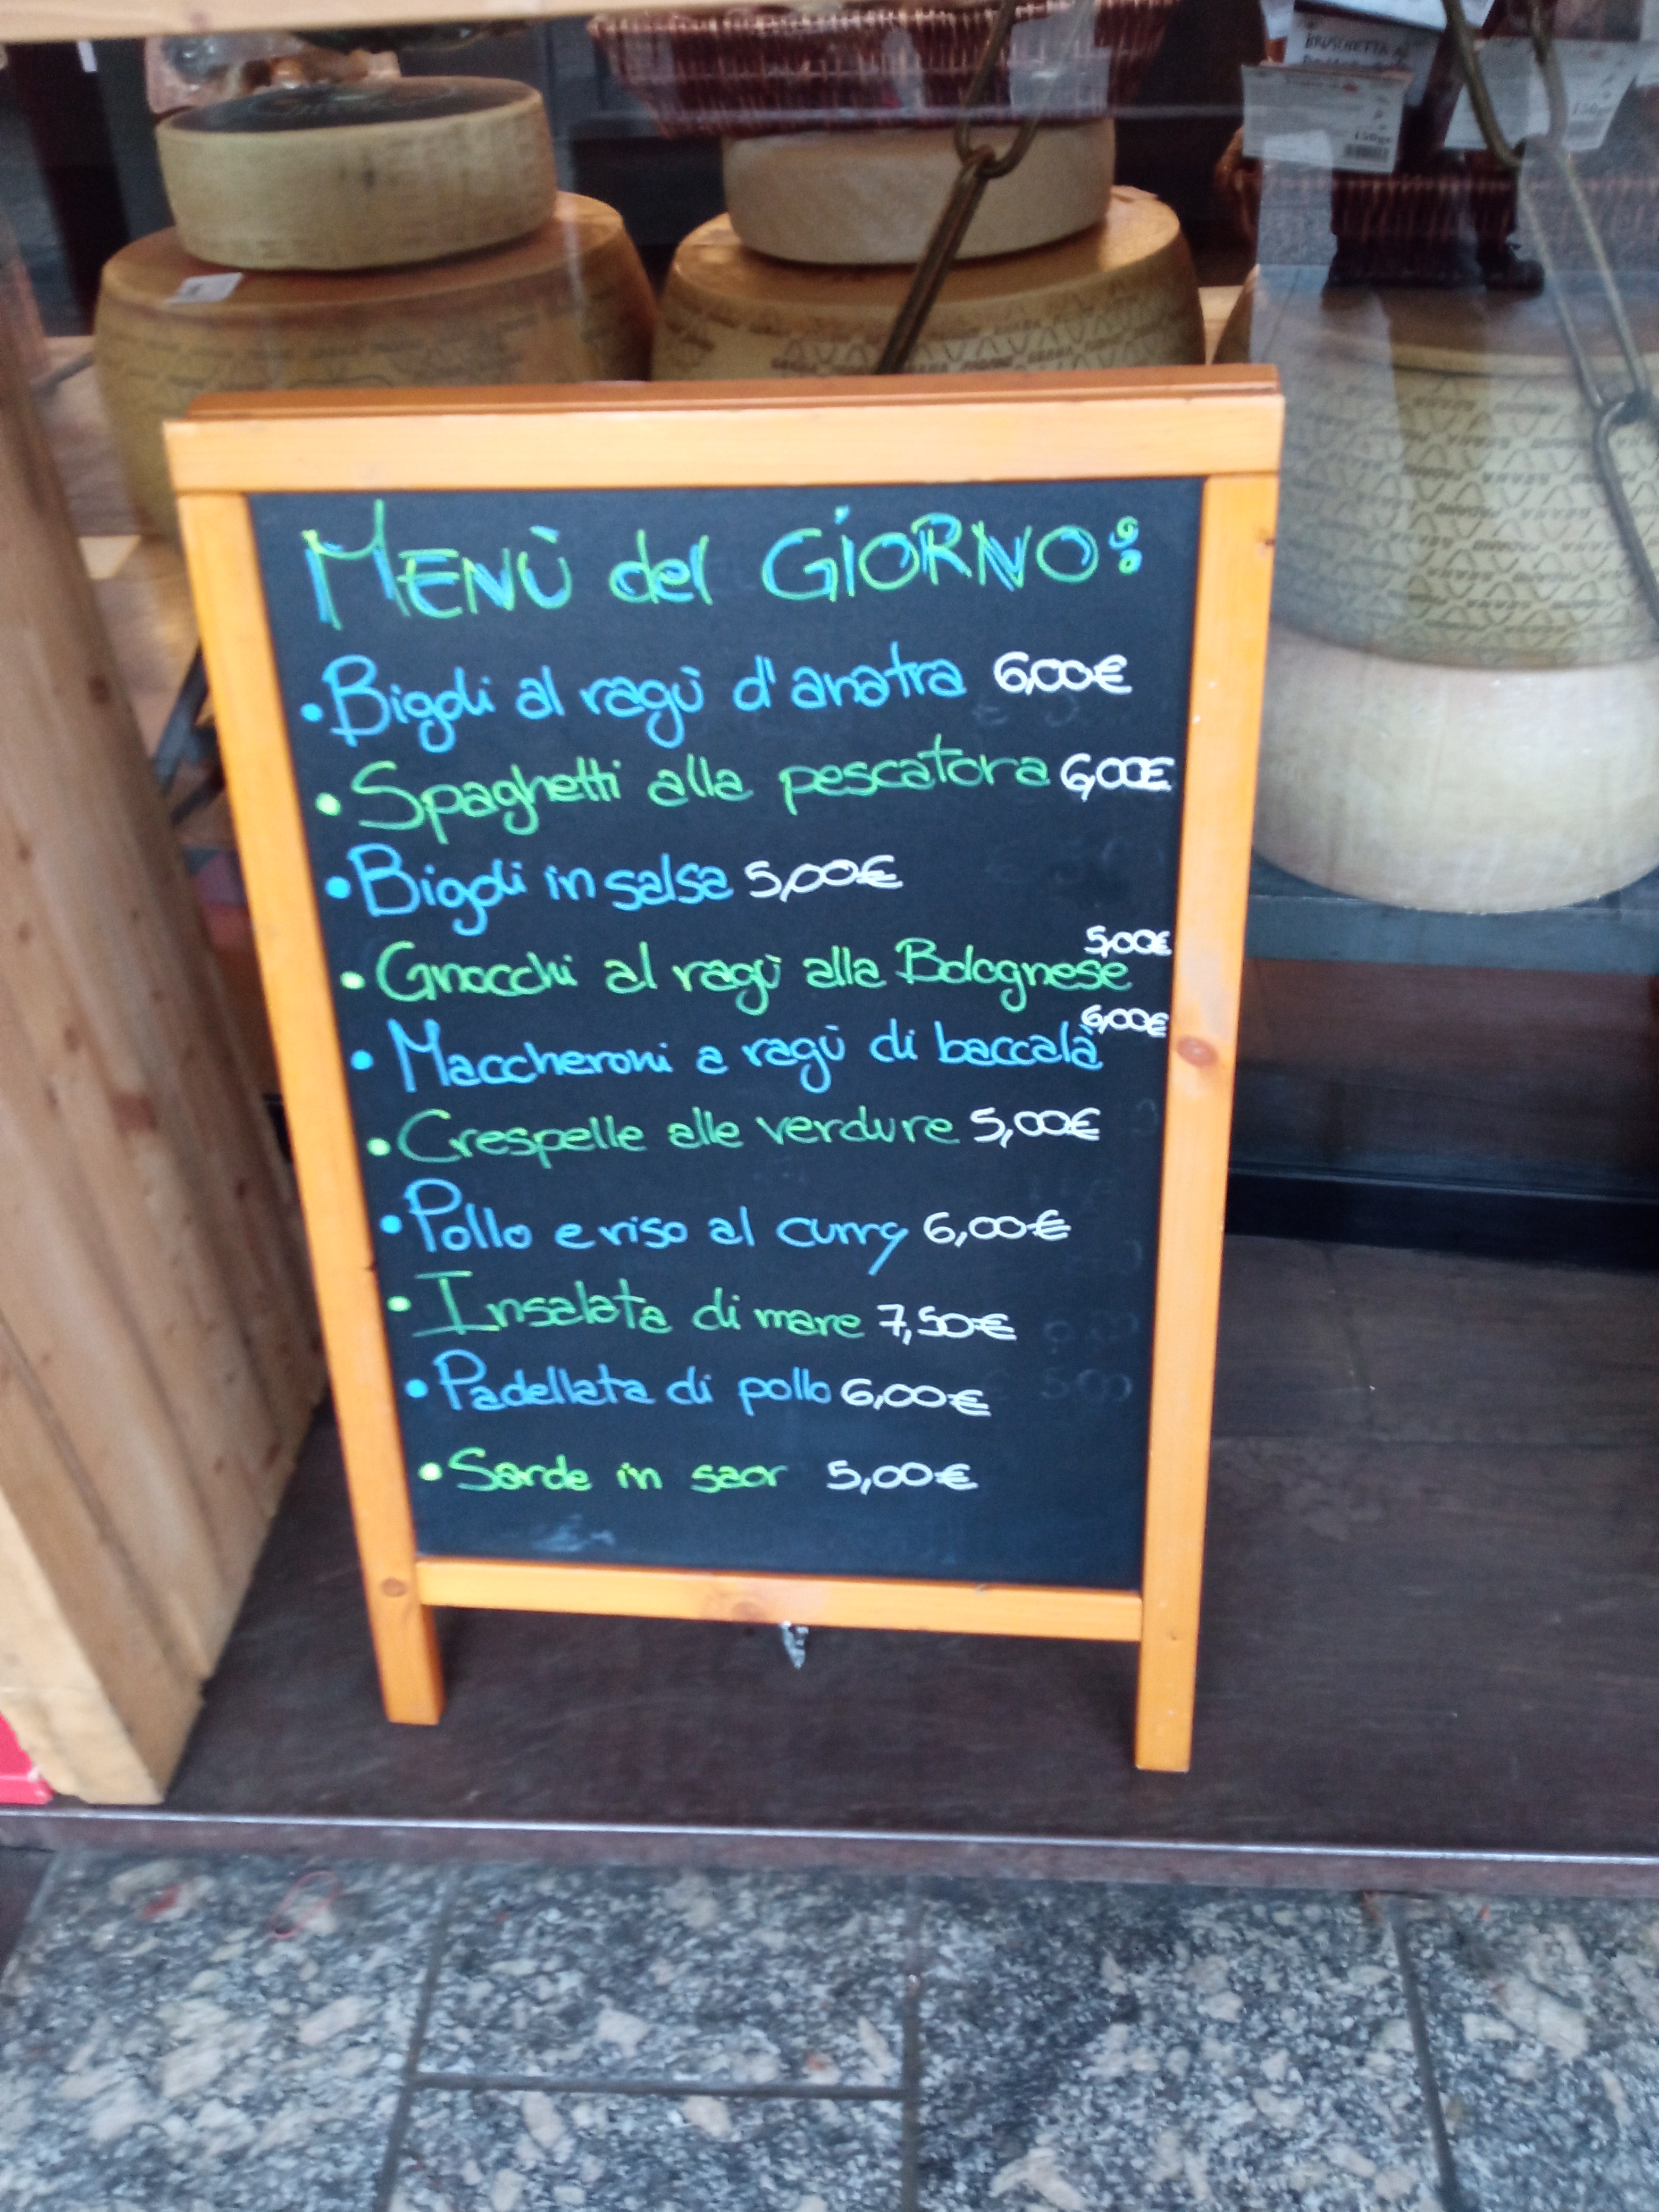 MENÙ del GIORNO:
• Bigoli al ragù d'anatra 6,00€
• Spaghetti alla pescatora 6,00€
• Bigoli in salsa 5,00€
• Gnocchi al ragù alla Bolognese 5,00€
• Maccheroni a ragù di baccalà 6,00€
• Crespelle alle verdure 5,00€
• Pollo e riso al curry 6,00€
• Insalata di mare 7,50€
• Padellata di pollo 6,00€
• Sarde in saor 5,00€